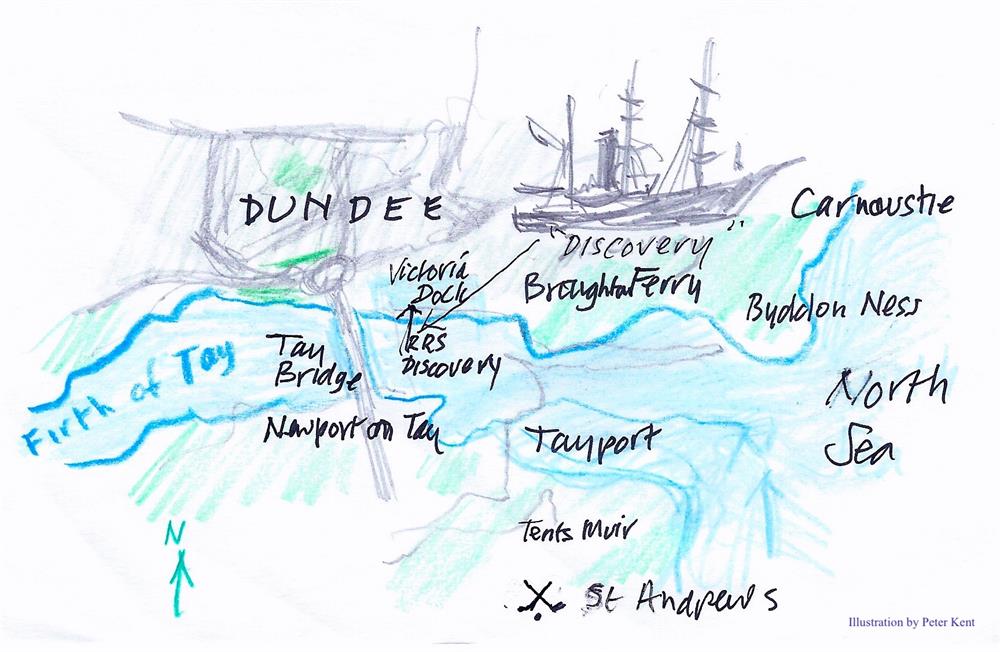 DUNDEE
Carnoustie
"DISCOVERY"
Victoria
Dock
Broughton Ferry
Byddon Ness
RRS
Discovery
Tay
Bridge
Firth of Tay
North
Sea
Newport on Tay
Tayport
Tents Muir
N
St Andrews
Illustration by Peter Kent